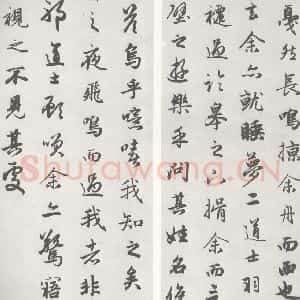 戛然長鳴掠余舟而西也
去余亦就睡夢二道士羽
躚過臨皋之下揖余而言
壁之遊樂乎問其姓名俛
答嗚乎噫嘻我知之矣
昔之夜飛鳴而過我者非
邪道士顧笑余亦驚寤
視之不見其處
Shufawang.cn